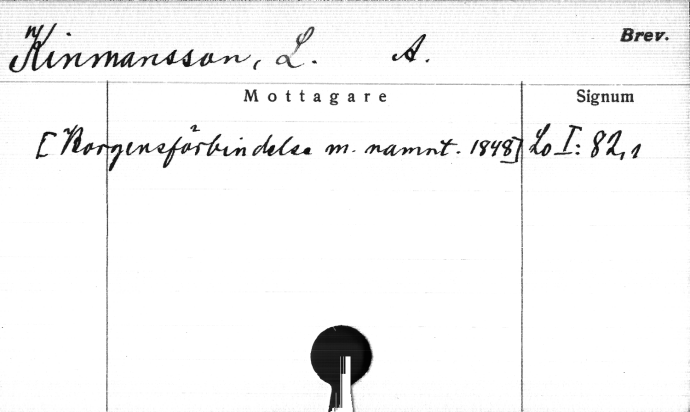 Kinmansson, L. A.
Brev.
Mottagare
Signum
[Borgensförbindelse m. namnt. 1848] Lo I: 82,1